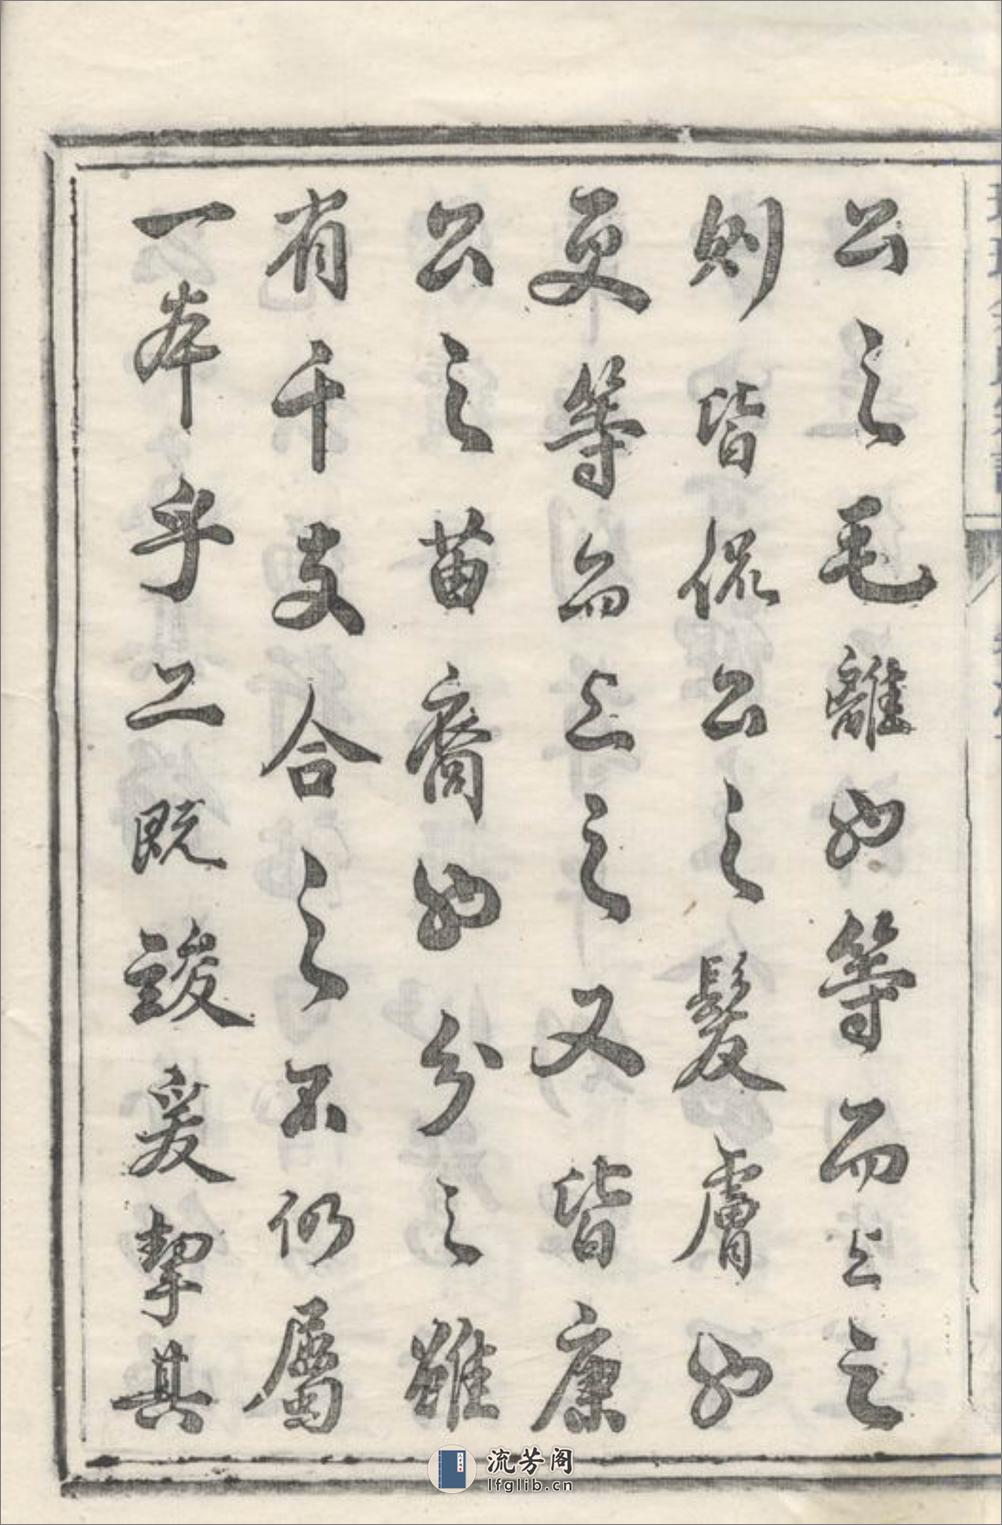 公之毛離也等而上之
則皆侃公之髮膚也
更等而上之又皆康
公之苗裔也分之雖
有千支合之不仍屬
一本乎工既竣爰挈其
流芳阁
lfglib.cn